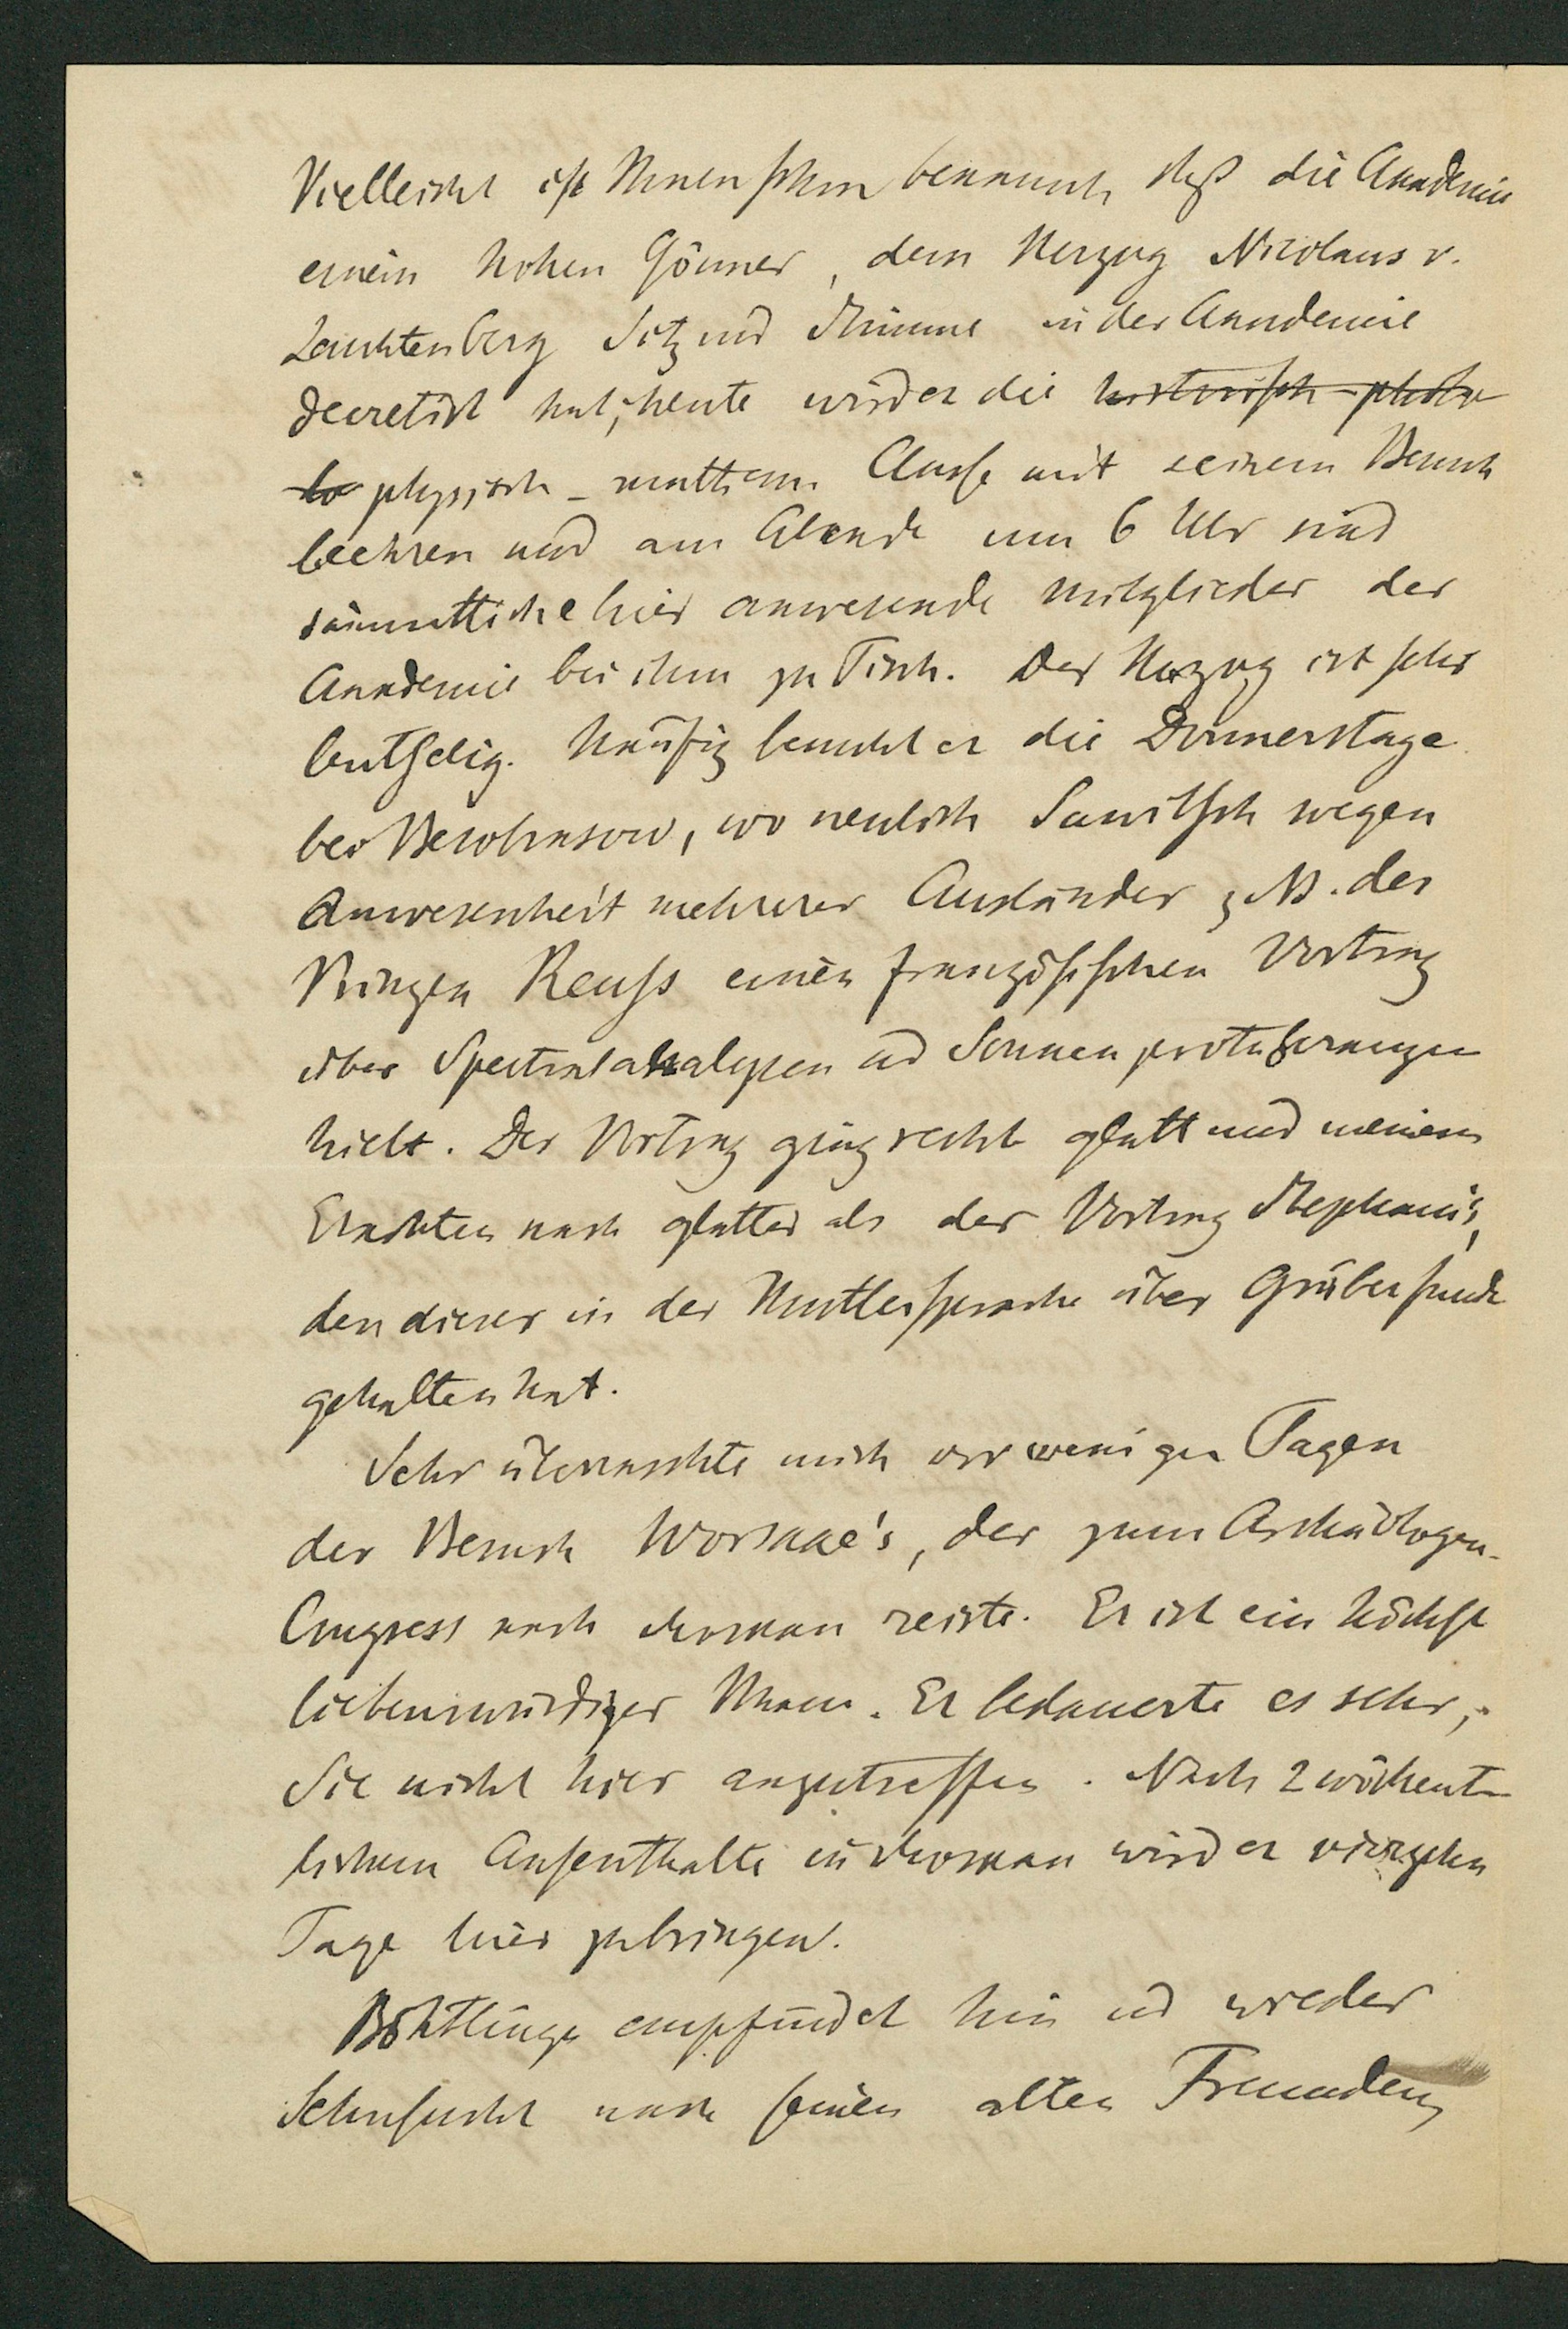 Vielleicht ist Ihnen schon bekannt, daß die Akademie
einem hohen Gönner, dem Herzog Nicolaus v.
Leuchtenberg Sitz und Stimme in der Akademie
decretirt hat; heute wird er die historisch-philo
lo physisch-mathem. Classe mit seinem Besuch
beehren und am Abende um 6 Uhr sind
sämmtliche hier anwesende Mitglieder der
Akademie bei ihm zu Tisch. Der Herzog ist sehr
leutselig. Häufig besucht er die Donnerstage
bei, wo neulich Sawitsch wegen
Anwesenheit mehrerer Ausländer z. B. des
Prinzen Reuss einen französischen Vortrag
über Spectralanalysen und Sonnenprotuberanzen
hielt. Der Vortrag ging recht glatt und meinem
Erachten nach glatter als der Vortrag Stephani's,
den dieser in der Muttersprache über Gräberfunde
gehalten hat.
Sehr überraschte mich vor wenigen Tagen
der Besuch Worsaae's, der zum Archäologen-
Congress nach Moskau reiste. Er ist ein höchst
liebenswürdiger Mann. Er bedauerte es sehr,
Sie nicht hier anzutreffen. Nach 2 wöchent-
lichem Aufenthalte in Moskau wird er vierzehn
Tage hier zubringen.
Böhtlingk empfindet hin und wieder
Sehnsucht nach seinen alten Freunden,